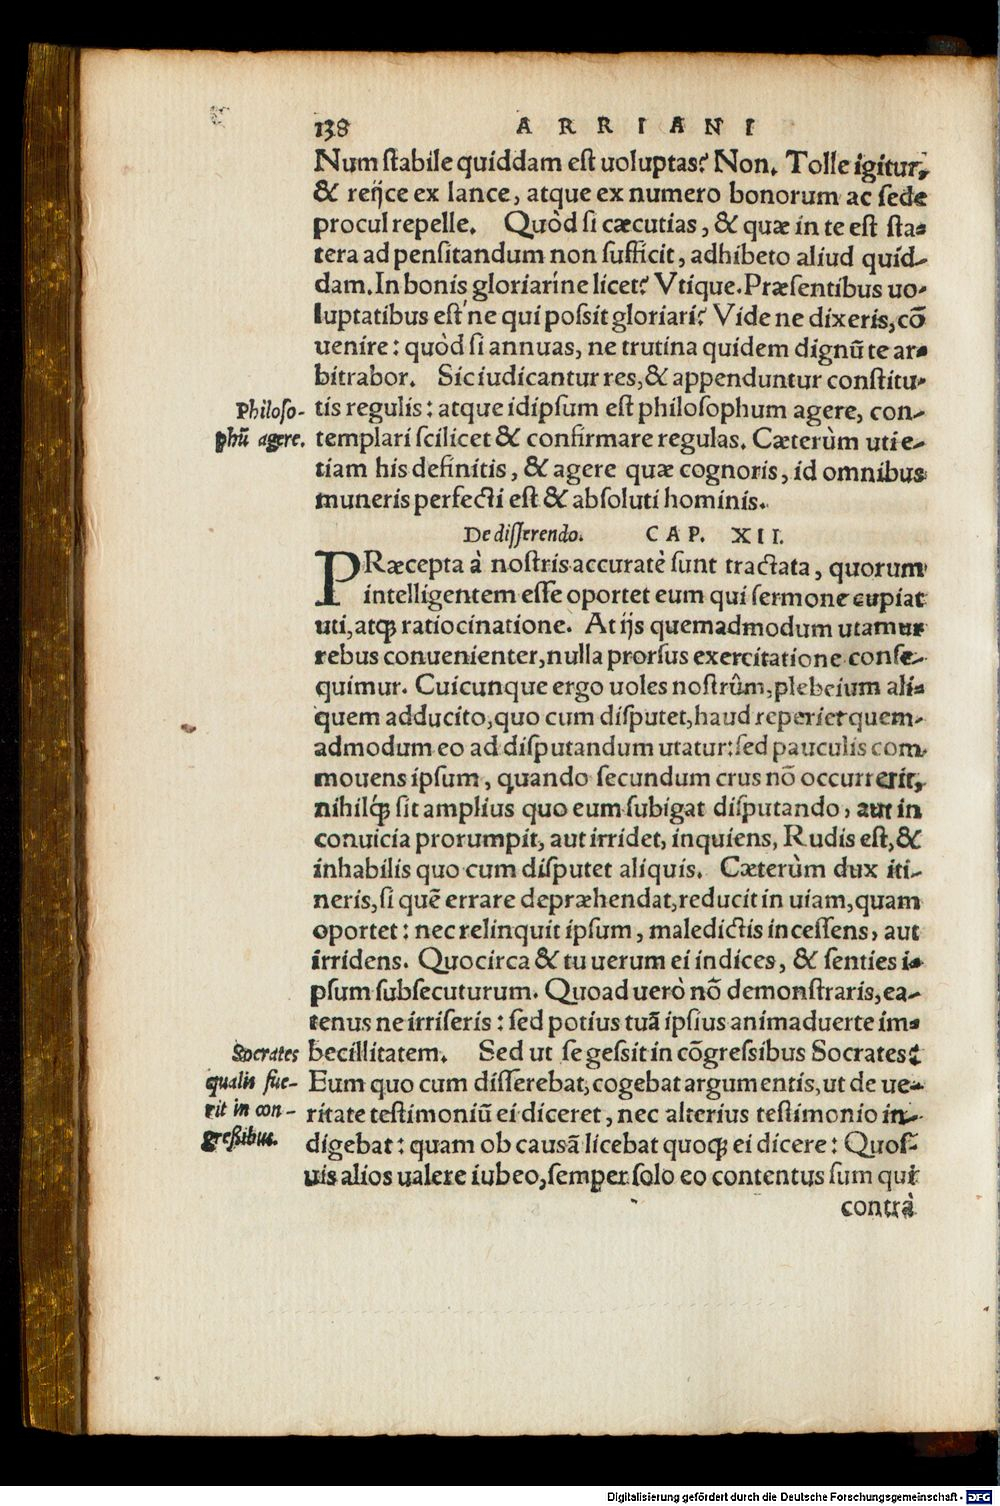 138 ARRIANI
Num ſtabile quiddam eſt uoluptas? Non. Tolle igitur,
& reĳce ex lance, atque ex numero bonorum ac ſede
procul repelle. Quòd ſi cæcutias, & quæ in te eſt ſta-
tera ad penſitandum non ſufficit, adhibeto aliud quid-
dam. In bonis gloriari'ne licet? Vtique. Præſentibus uo-
luptatibus eſt'ne qui poſsit gloriari? Vide ne dixeris, cō
uenire: quòd ſi annuas, ne trutina quidem dignū te ar-
bitrabor. Sic iudicantur res, & appenduntur conſtitu-
Philoſo-
phū agere.
tis regulis: atque idipſum eſt philoſophum agere, con-
templari ſcilicet & confirmare regulas. Cæterùm uti e-
tiam his definitis, & agere quæ cognoris, id omnibus
muneris perfecti eſt & abſoluti hominis.
De diſſerendo. CAP. XII.
PRæcepta à noſtris accuratè ſunt tractata, quorum
intelligentem eſſe oportet eum qui ſermone cupiat
uti, atq; ratiocinatione. At ĳs quemadmodum utamur
rebus conuenienter, nulla prorſus exercitatione conſe-
quimur. Cuicunque ergo uoles noſtrûm, plebeium ali-
quem adducito, quo cum diſputet, haud reperiet quem-
admodum eo ad diſputandum utatur: ſed pauculis com
mouens ipſum, quando ſecundum crus nō occurrerit,
nihilq́; ſit amplius quo eum ſubigat diſputando, aut in
conuicia prorumpit, aut irridet, inquiens, Rudis eſt, &
inhabilis quo cum diſputet aliquis. Cæterùm dux iti-
neris, ſi quē errare depræhendat, reducit in uiam, quam
oportet: nec relinquit ipſum, maledictis inceſſens, aut
irridens. Quocirca & tu uerum ei indices, & ſenties i-
pſum ſubſecuturum. Quoad uerò nō demonſtraris, ea-
tenus ne irriſeris: ſed potius tuā ipſius animaduerte im-
Socrates
qualis fue-
rit in con-
greßibus.
becillitatem. Sed ut ſe geſsit in cōgreſsibus Socrates?
Eum quo cum diſſerebat, cogebat argumentis, ut de ue-
ritate teſtimoniū ei diceret, nec alterius teſtimonio in-
digebat: quam ob causā licebat quoq; ei dicere: Quoſ-
uis alios ualere iubeo, ſemper ſolo eo contentus ſum qui
contrà
Digitalisierung gefördert durch die Deutsche Forschungsgemeinschaft - DFG